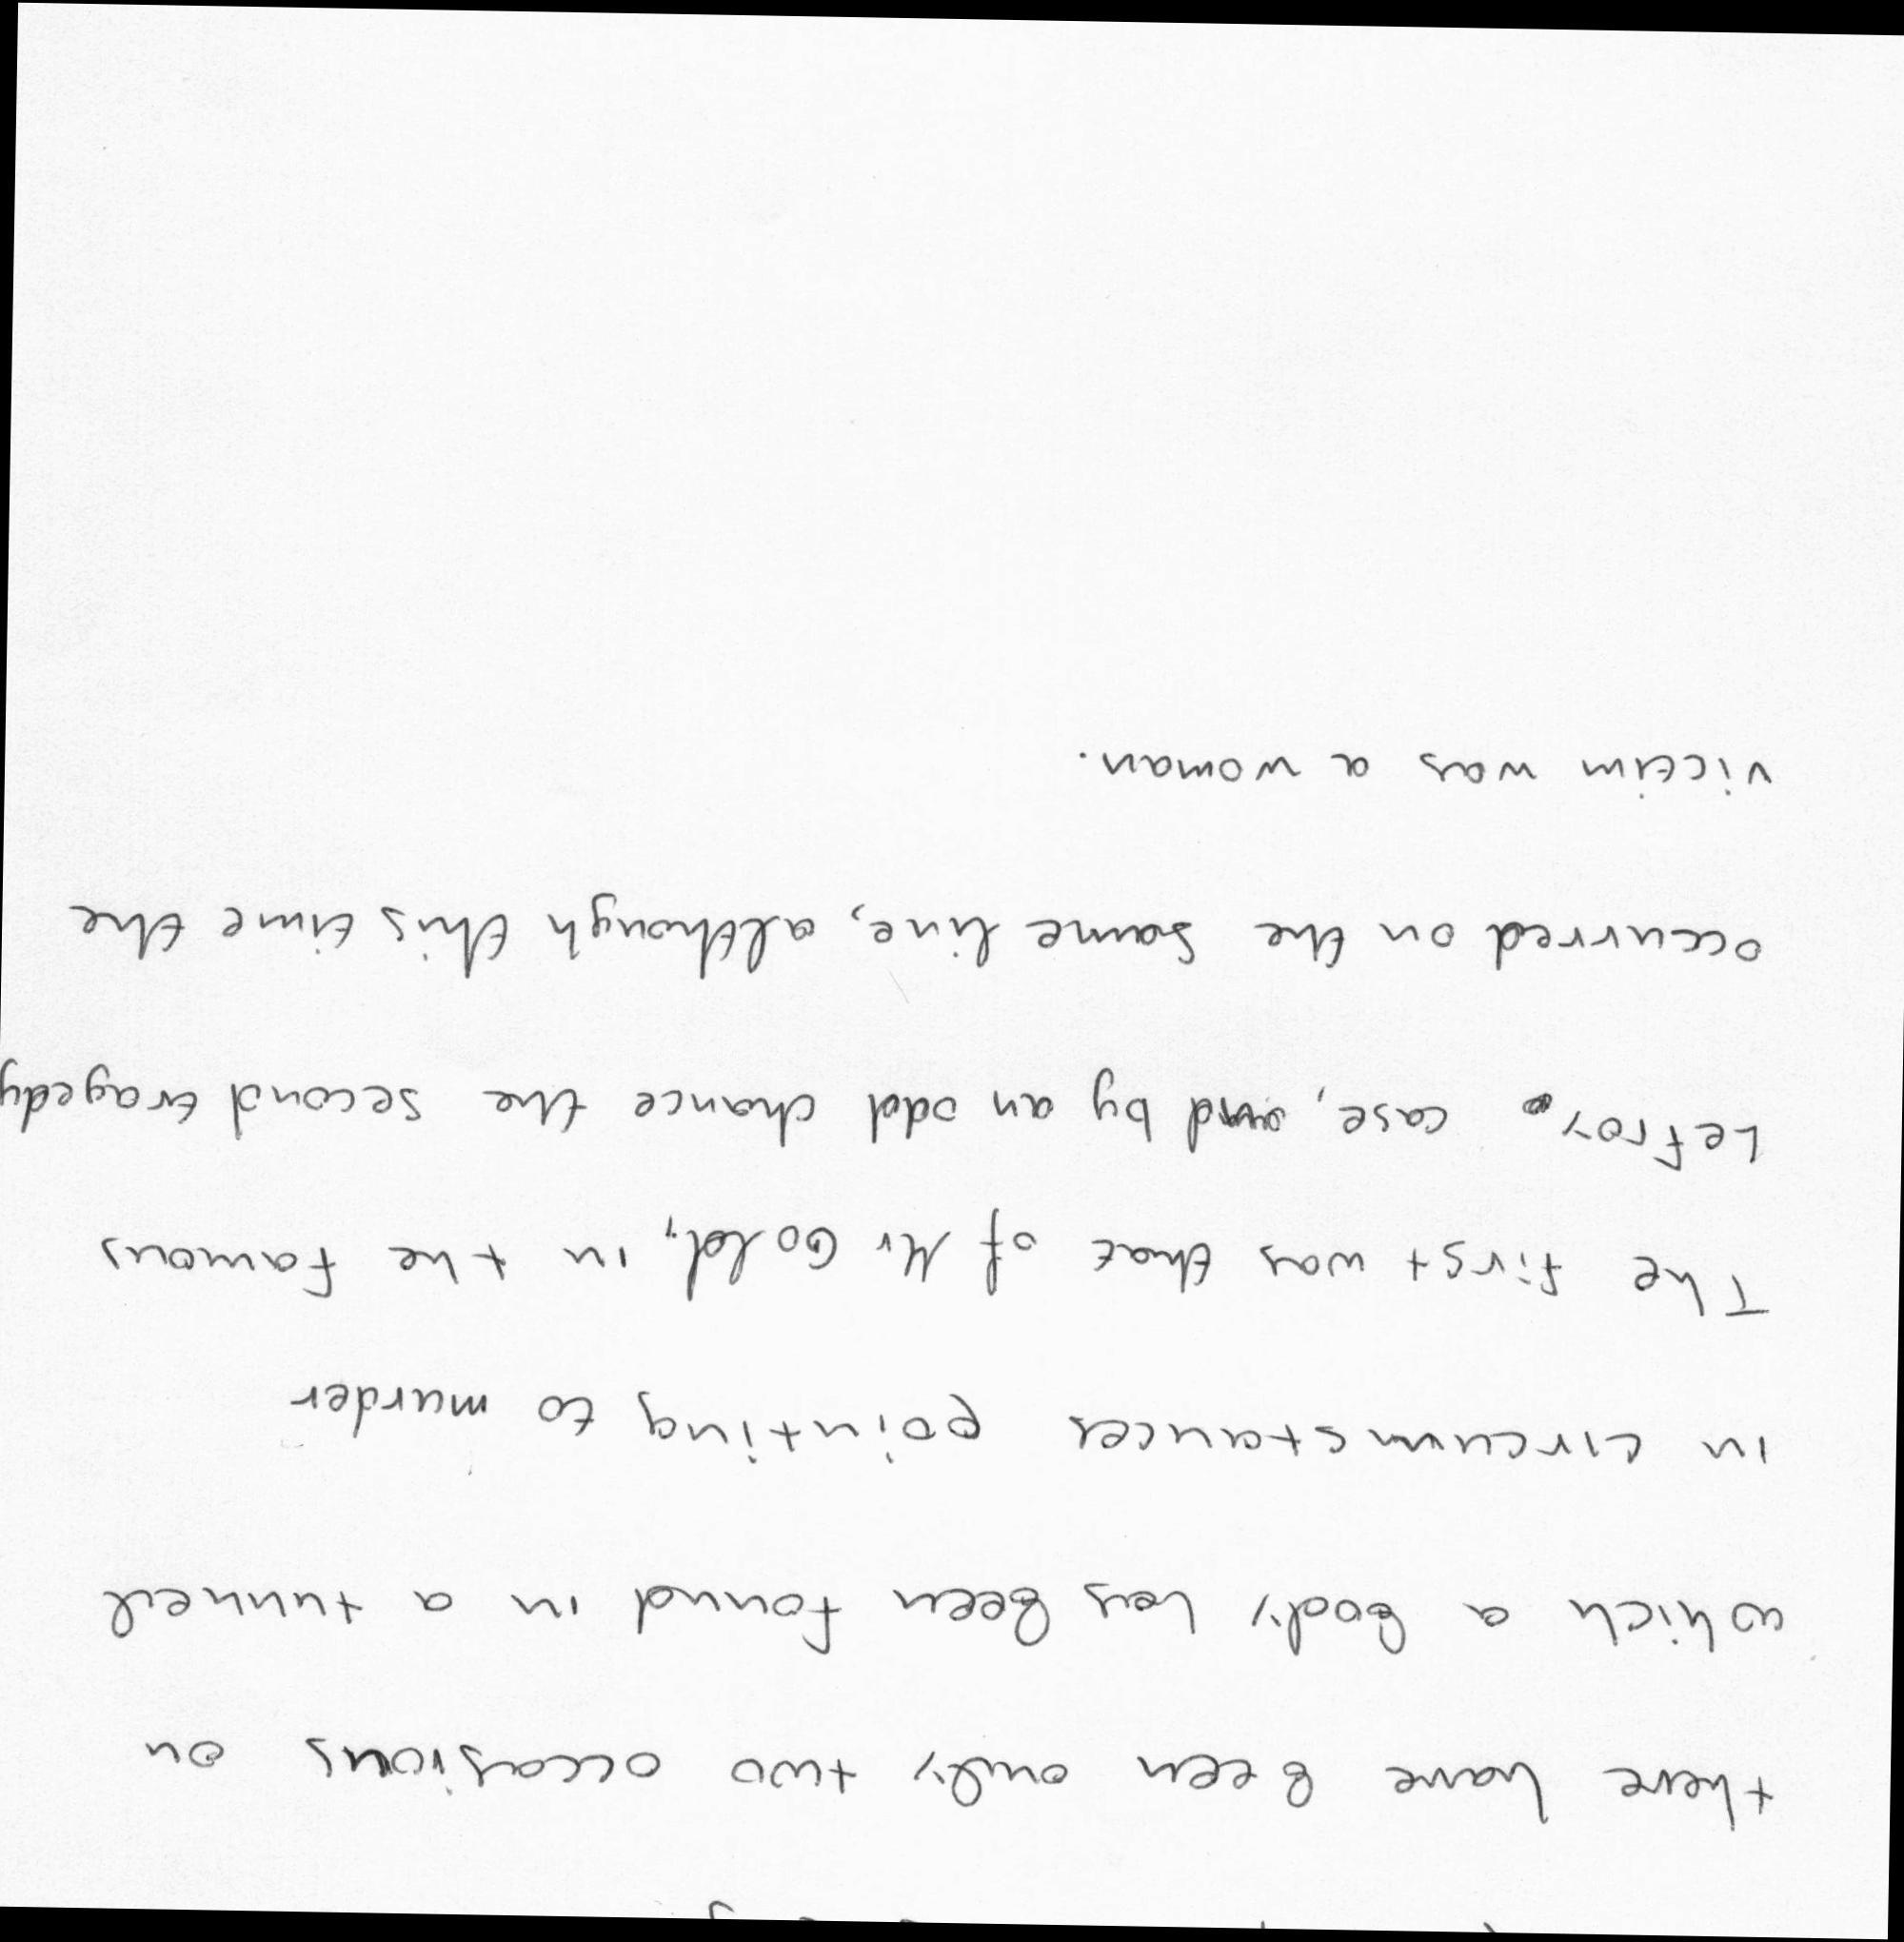 there have been only two occasions on
which a body has been found in a tunnell
in circumstances pointing to murder
The first was that of Mr Gold, in the famous
Lefroy case, and by an odd chance the second tragedy
occurred on the same line, although this time the
victim was a woman.